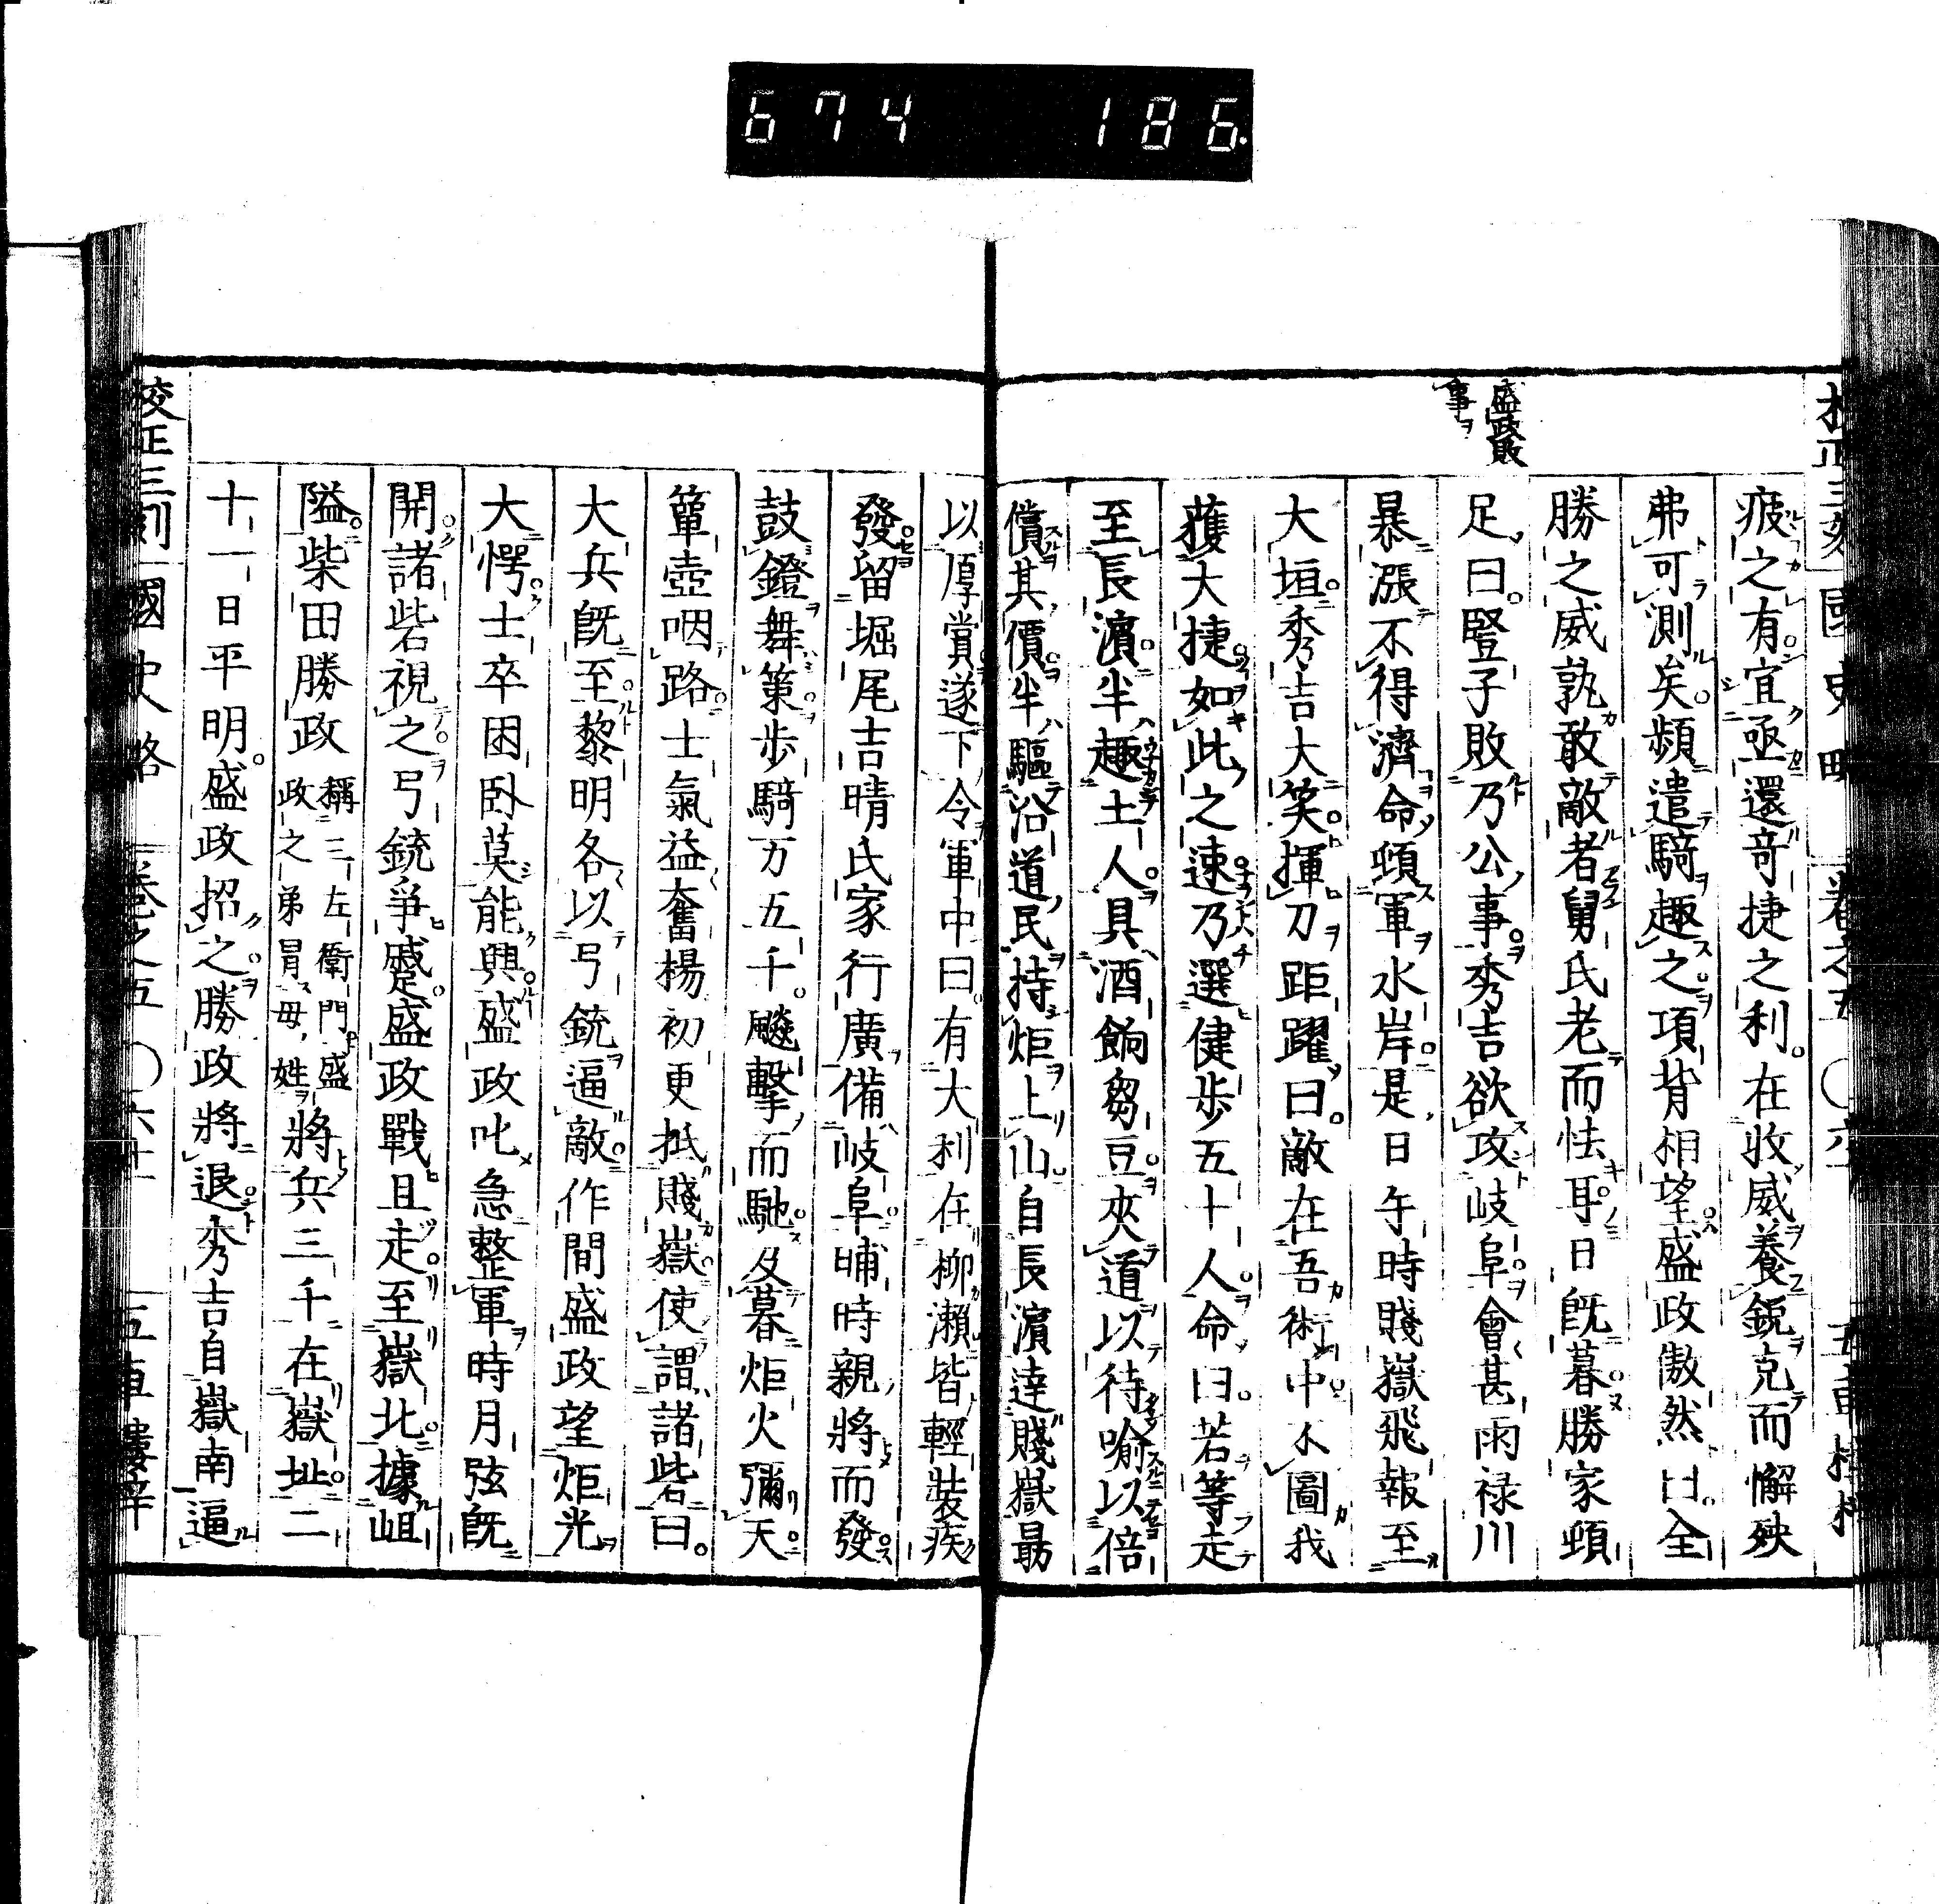 674 186.
盛政敗
事ヲ
疲之有宜亟還竒捷之利在收威養銳克而懈殃
弗可測矣頻遣騎趣之項背相望盛政傲然曰全
勝之威孰敢敵者舅氏老而怯耳日旣暮勝家頓
足曰豎子敗乃公事秀吉欲攻岐阜會甚雨禄川
暴漲不得濟命頓軍水岸是日午時賤嶽飛報至
大垣秀吉大笑揮刀距躍曰敵在吾術中不圖我
獲大捷如此之速乃選健歩五十人命曰若等走
至長濵半趣土人具酒餉芻豆夾道以待喻以倍
償其價半驅沿道民持炬上山自長濵達賤嶽最
以厚賞遂下令軍中曰有大利在柳瀨皆輕裝疾
發留堀尾吉晴氏家行廣備岐阜晡時親將而發
鼓鐙舞策歩騎万五千飈擊而馳及暮炬火彌天
簞壺咽路士氣益奮楊初更抵賤嶽使謂諸砦曰
大兵旣至黎明各以弓銃逼敵作間盛政望炬光
大愕士卒困臥莫能興盛政叱急整軍時月弦旣
開諸砦視之弓銃爭蹙盛政戰且走至嶽北據岨
隘柴田勝政稱三左衛門盛政之弟冒母姓將兵三千在嶽址二
十一日平明盛政招之勝政將退秀吉自嶽南逼
校正三刻 國史略 卷之五 五車樓梓